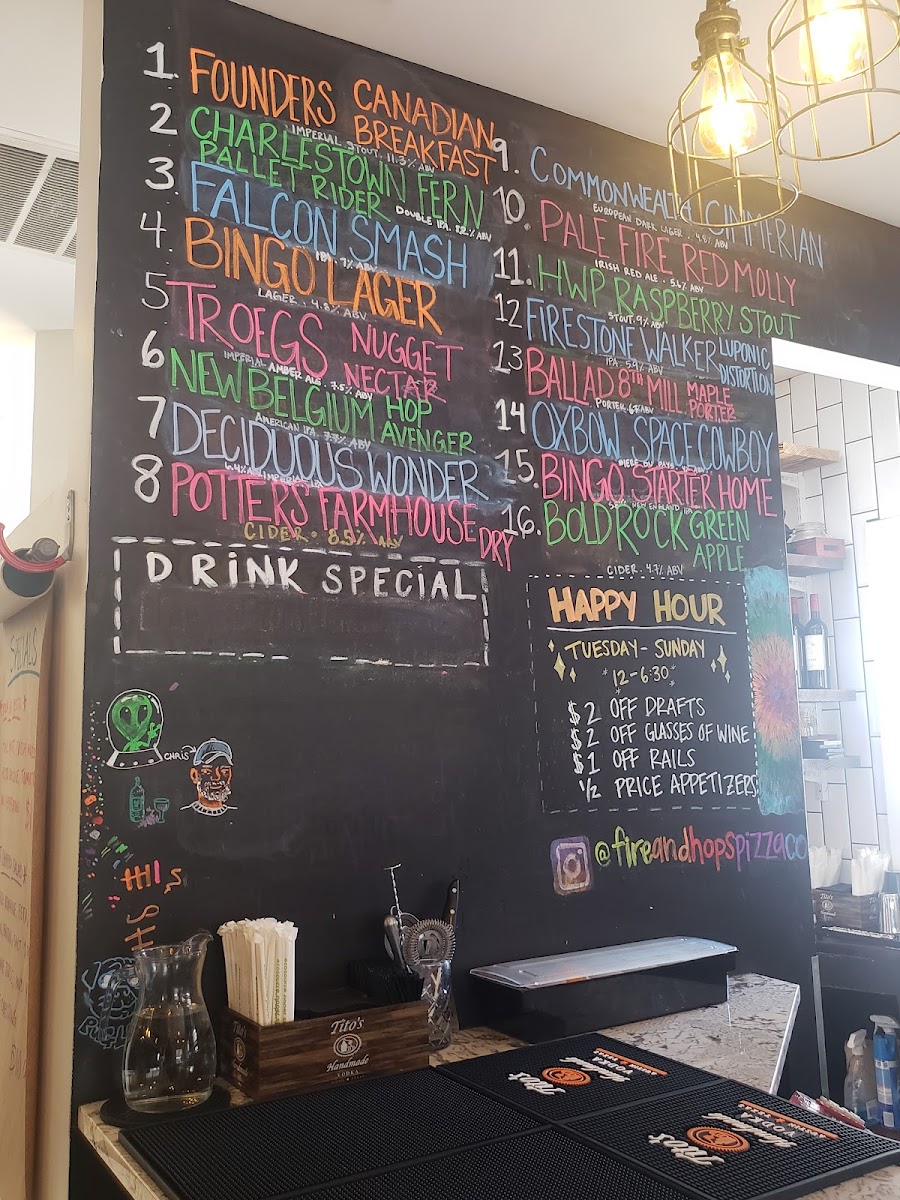 1. FOUNDERS CANADIAN BREAKFAST
IMPERIAL STOUT. 11.3% ABV
2 CHARLESTOWN FERN
PALLET RIDER
DOUBLE IPA. 8.2% ABV
3. FALCON SMASH
IPA. 7% ABV
4. BINGO LAGER
LAGER. 4.8% ABV
5 TROEGS NUGGET NECTAR
IMPERIAL AMBER ALE. 7.5% ABV
6 NEW BELGIUM HOP AVENGER
AMERICAN IPA.
7 DECIDUOUS WONDER
8 POTTERS FARMHOUSE DRY
CIDER. 8.5% ABV
9. COMMONWEALTH CIMMERIAN
EUROPEAN DARK LAGER. 4.8% ABV
10. PALE FIRE RED MOLLY
IRISH RED ALE. 5.4% ABV
11. HWP RASPBERRY STOUT
STOUT. 9% ABV
12 FIRESTONE WALKER LUPONIC DISTORTION
IPA. 5.9% ABV
13 BALLAD 8TH MILL MAPLE PORTER
PORTER. 6% ABV
14 OXBOW SPACECOWBOY
15. BINGO STARTER HOME
NEW ENGLAND IPA
16. BOLD ROCK GREEN APPLE
CIDER. 4.7% ABV
DRINK SPECIAL
HAPPY HOUR
TUESDAY - SUNDAY
*12-6:30*
$2 OFF DRAFTS
$2 OFF GLASSES OF WINE
$1 OFF RAILS
1/2 PRICE APPETIZERS
CHRIS
@fireandhopspizzaco
SPECIALS
Tito's
Handmade
VODKA
Tito's
Handmade
VODKA
Tito's
Handmade
VODKA
Tito's